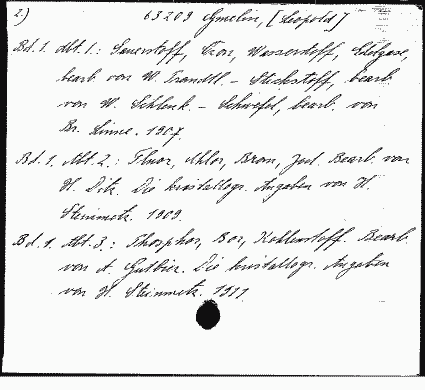 2.) 63209 Gmelin, [Leopold]
Bd. 1. Abt. 1: Sauerstoff, Ozon, Wasserstoff, Edelgase,
bearb. von W. Prandtl. - Stickstoff, bearb.
von W. Schlenk. - Schwefel, bearb. von
Br. Linne. 1907.
Bd. 1. Abt. 2.: Fluor, Chlor, Brom, Jod. Bearb. von
H. Ditz. Die kristallogr. Angaben von H.
Steinmetz. 1909.
Bd. 1. Abt. 3.: Phosphor, Bor, Kohlenstoff. Bearb.
von A. Gutbier. Die kristallogr. Angaben
von H. Steinmetz. 1911.